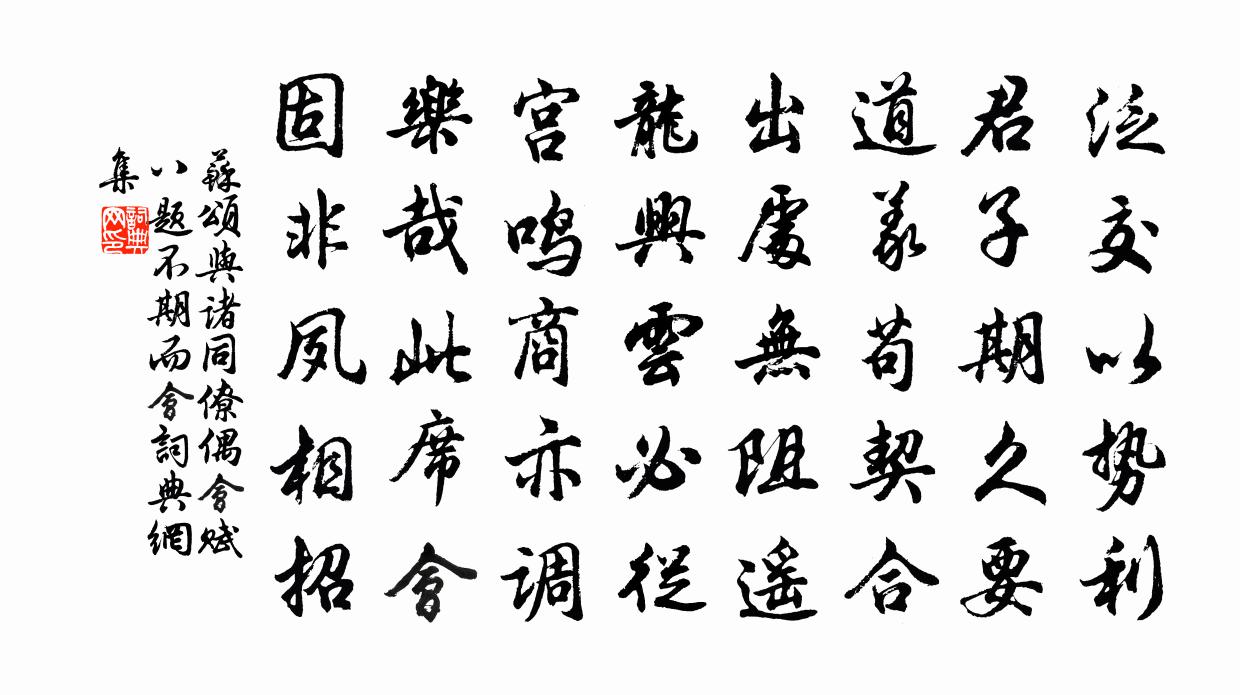 泛交以势利
君子期久要
道义苟契合
出處無阻遥
龍興雲必從
宫鸣商亦调
樂哉此席會
固非夙相招
蘇頌與诸同僚偶會赋
八题不期而會詞典網
集
詞典網印